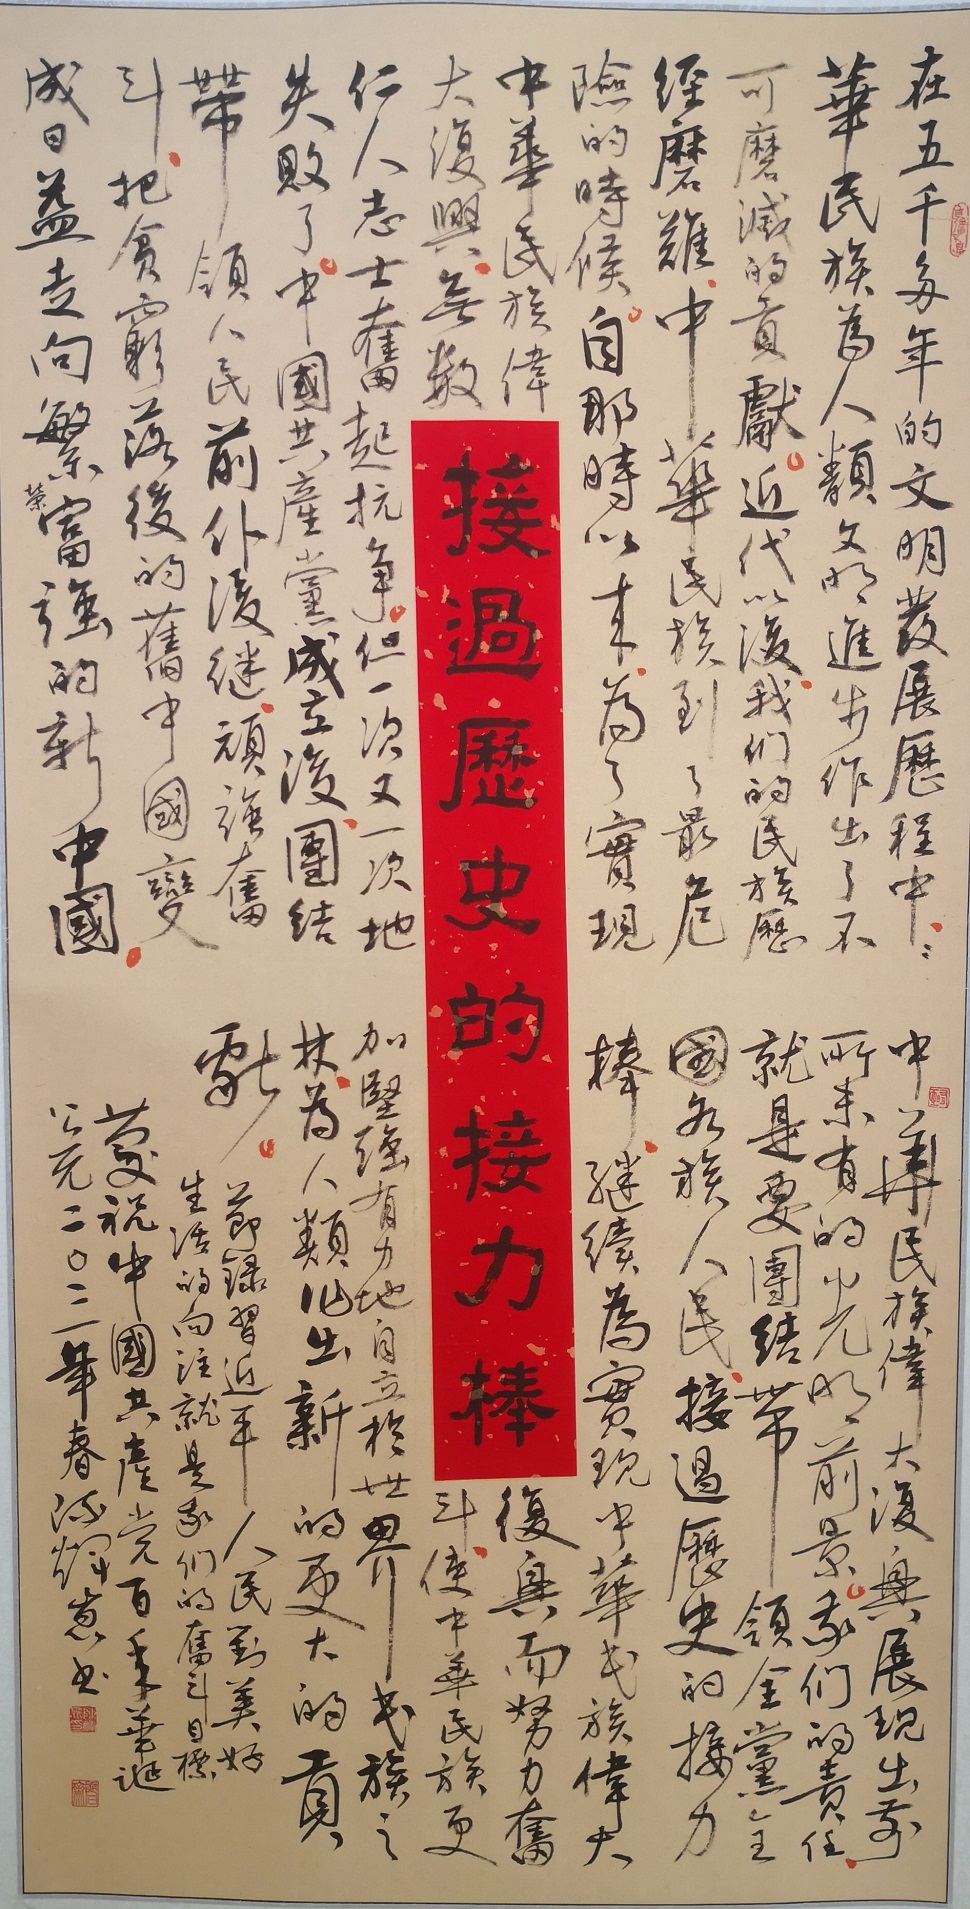 在五千多年的文明發展歷程中
華民族為人類文明進步作出了不
可磨滅的貢獻近代以後我們的民族歷
經磨難中華民族到了最危
險的時候自那時以来為了實現
中華民族偉
大復興無数
仁人志士奮起抗争但一次又一次地
失败了中國共產黨成立後團结
帶領人民前仆後继頑強奮
斗把贫窮落後的舊中國變
成日益走向繁榮富强的新中國
接過歷史的接力棒
中華民族偉大復興展現出前
所未有的光明前景我们的責任
就是要團结帶領全黨全
國各族人民接過歷史的接力
棒继續為實現中華民族偉大
復興而努力奮
斗使中華民族更
加堅强有力地自立於世界民族之
林為人類作出新的更大的貢
獻
節録習近平人民對美好
生活的向往就是我们的奮斗目標
慶祝中國共產党百年華誕
公元二〇二一年春